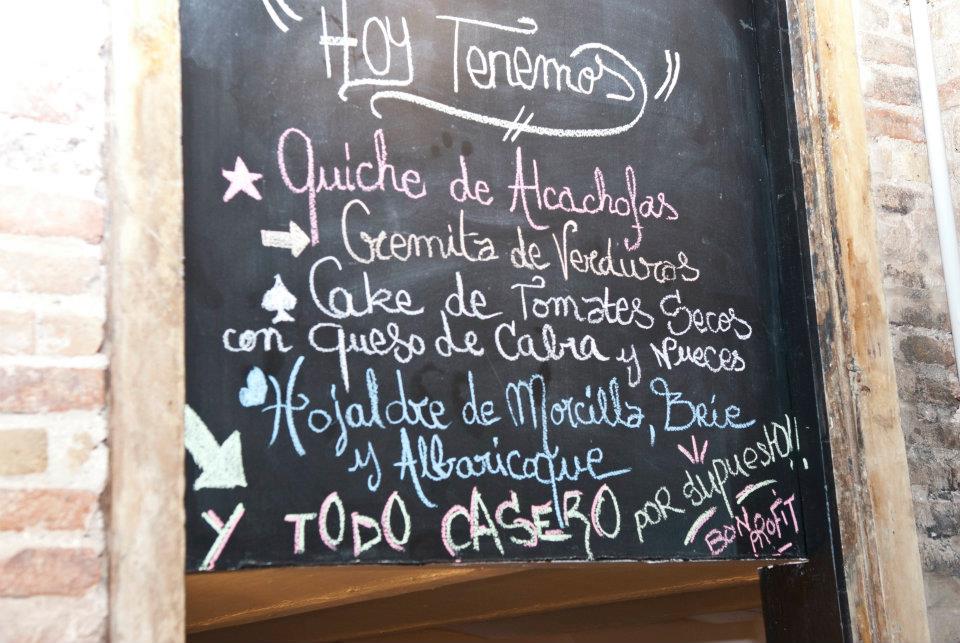 Hoy Tenemos
Quiche de Alcachofas
Cremita de Verduras
Cake de Tomates Secos
con queso de Cabra y Nueces
Hojaldre de Morcilla, Brie
y Albaricoque
Y TODO CASERO POR SUPUESTO!!
BON PROFIT